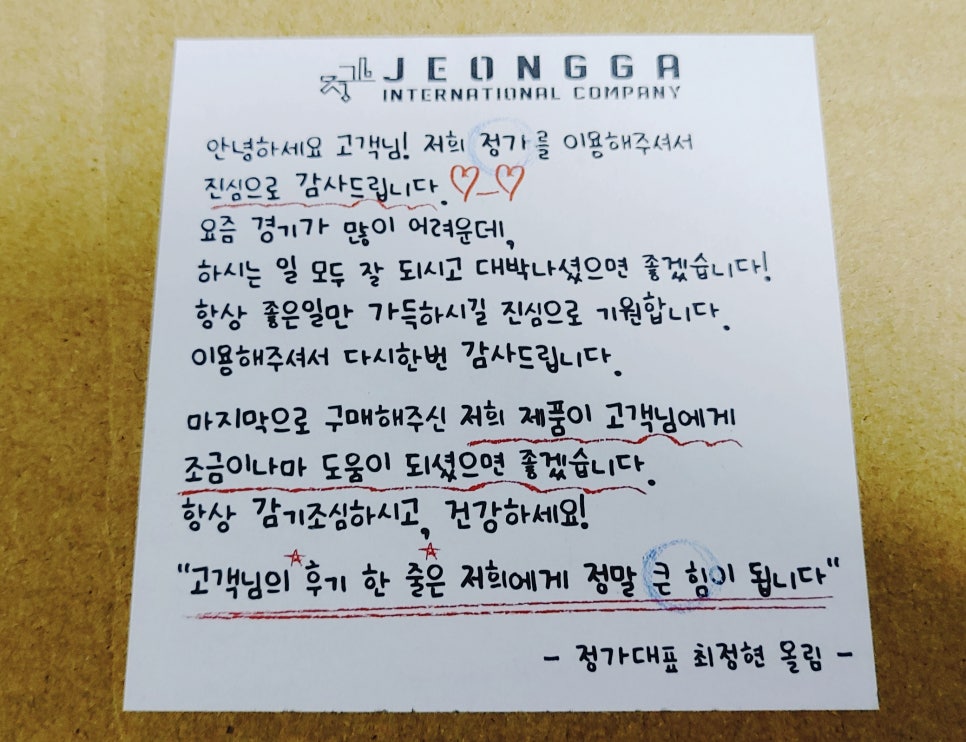 정가 JEONGGA
INTERNATIONAL COMPANY
안녕하세요 고객님! 저희 정가를 이용해주셔서
진심으로 감사드립니다. ♡_♡
요즘 경기가 많이 어려운데,
하시는 일 모두 잘 되시고 대박나셨으면 좋겠습니다!
항상 좋은일만 가득하시길 진심으로 기원합니다.
이용해주셔서 다시한번 감사드립니다.
마지막으로 구매해주신 저희 제품이 고객님에게
조금이나마 도움이 되셨으면 좋겠습니다.
항상 감기조심하시고, 건강하세요!
"고객님의 후기 한 줄은 저희에게 정말 큰 힘이 됩니다"
- 정가대표 최정현 올림 -